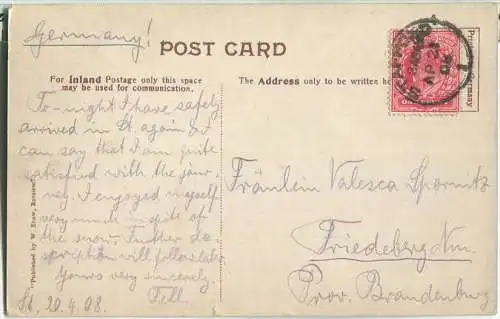 Germany!
POST CARD
For Inland Postage only this space
may be used for communication.
The Address only to be written here
To-night I have safely
arrived in St. again &
can say that I am quite
satisfied with the jour-
ney. I enjoyed myself
very much in spite of
the snow. Further de-
scription will follow later.
Yours very sincerely
St. 29.4.08.
Fräulein Valesca Spornitz
Friedeberg Nm.
Prov. Brandenburg
"Published by W. Shaw, Burslem"
Germany